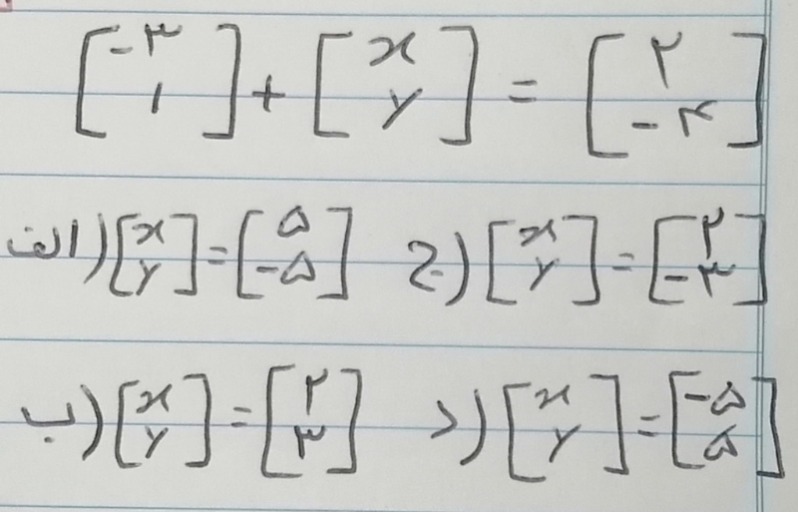 [-۳ ۱] + [x y] = [۲ -۴]
الف) [x y] = [۵ -۵] ج) [x y] = [۲ -۳]
ب) [x y] = [۲ ۳] د) [x y] = [-۵ ۵]